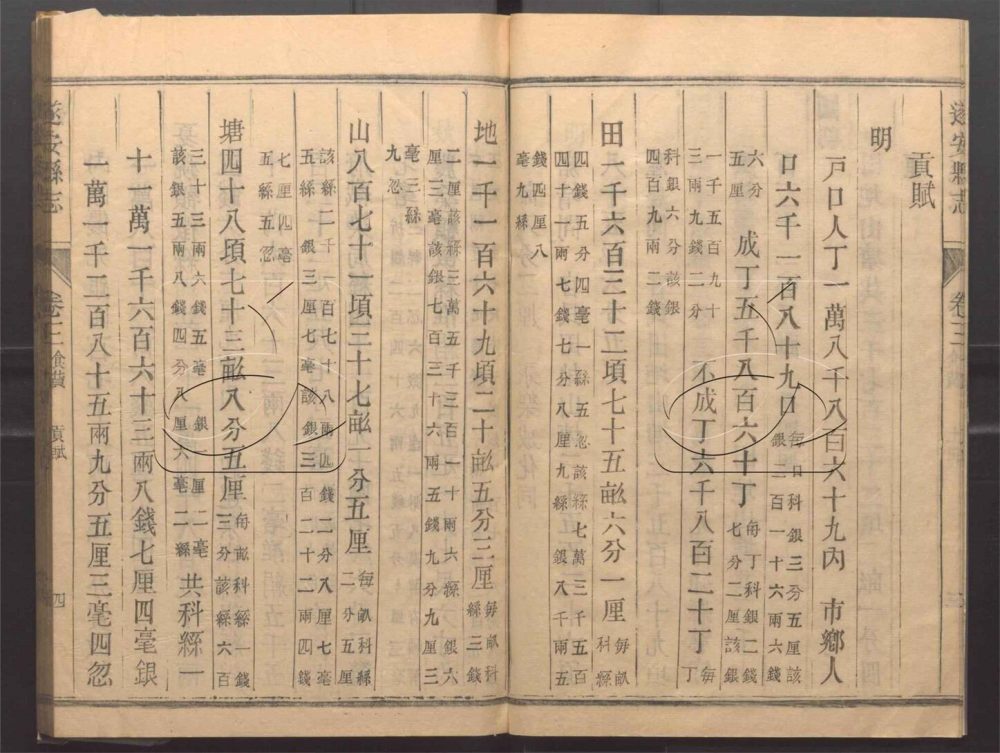 遂安縣志
卷三
貢賦
明
戶口人丁一萬八千八百六十九內 市鄉人
口六千一百八十九口 每口科銀三分五厘該
銀二百一十六兩六錢
六分
五厘 成丁五千八百六十丁 每丁科銀二錢
七分二厘該銀
一千五百九十
三兩九錢二分 不成丁六千八百二十丁 每
丁
科銀六分該銀
四百九兩二錢
田二千六百三十二項七十五畝六分一厘 每畝
科絲
四錢五分四毫一絲五忽該絲七萬三千五百
四十四兩一錢七分八厘九絲 銀八千兩五
錢四厘八
毫九絲
地一千一百六十九項二十畝五分三厘 每畝科
絲三錢
二厘該絲三萬五千三百一十兩六絲 銀六
厘三毫該銀七百三十六兩五錢九分九厘三
毫三絲
九忽
山八百七十一項三十七畝二分五厘 每畝科絲
二分五厘
該絲二千一百七十八兩四錢二分八厘七毫
五絲 銀三厘七毫該銀三百二十二兩四錢
七厘四毫
五絲五忽
塘四十八項七十三畝八分五厘 每畝科絲一錢
三分該絲六百
三十三兩六錢五毫 銀一厘二毫
該銀五兩八錢四分八厘六毫二絲 共科絲一
十一萬一千六百六十三兩八錢七厘四毫銀
一萬一千二百八十五兩九分五厘三毫四忽
遂安縣志
卷三 食貨 貢賦 四